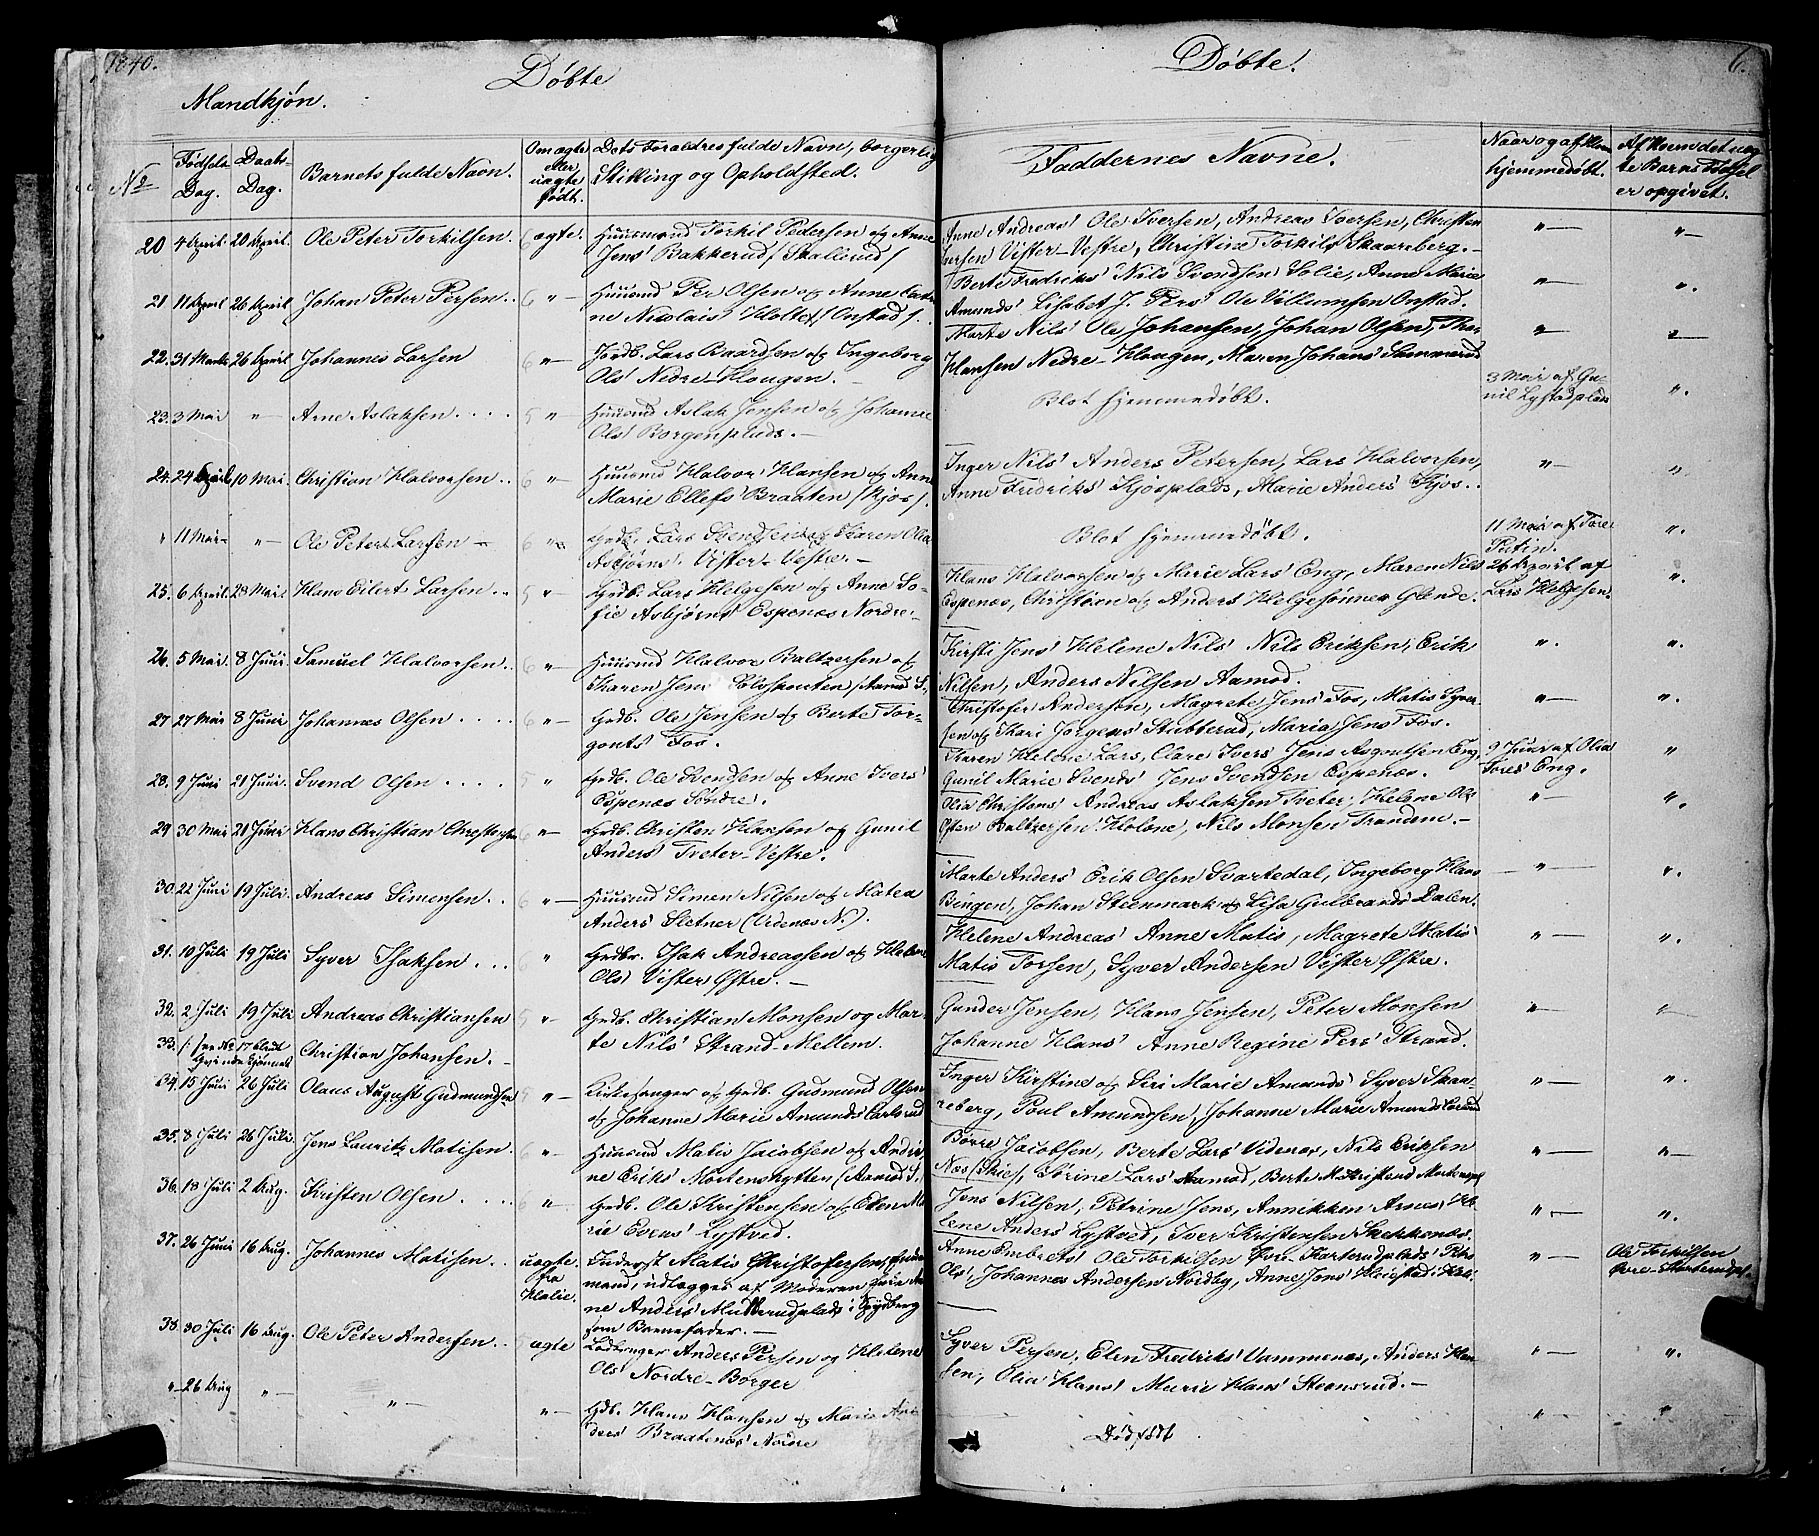 1840.
Døbte
Mandkjøn.
Døbte.
6.
No
Fødsels Dag.
Daabs- Dag.
Barnets fulde Navn.
Om ægte eller uægte født.
Dets Forældres fulde Navn, borgerlig Stilling og Opholdsted.
Faddernes Navne.
Naar og af Hvem hjemmedøbt.
Af Hvem det uægte Barns Fødsel er opgivet.
20 4 April. 20 April. Ole Peter Torkilsen. 6 ægte. Huusmand Torkil Pedersen og Anne
Jens' Bakkerud / Skallerud /
Anne Andreas' Ole Iversen, Andreas Iversen, Christen
Vister-Vestre, Christine Torkils' Skaareberg. -
21 11 April 26 April. Johan Peter Persen .. 6 " Huusmd Per Olsen og Anne Catri-
ne Nicolais' Holtet / Onstad /.
Berte Fredriks' Nils Svendsen Solie, Anne Marie
Amunds' Lisabet J. Pers' Ole Villumsen Onstad.
22. 31 Marts 26 April Johannes Larsen 6 " Jordb. Lars Baardsen og Ingeborg
Ols' Nedre-Haugen. -
Marte Nils' Ole Johansen, Johan Olsen, Thor
Hansen Nedre-Haugen, Maren Johans' Sammerud
23. 3 Mai " Arne Aslaksen .... 5 " Huusmd Aslak Jensen og Johanne
Ols' Borgenplads. -
Blot hjemmedøbt.
3 Mai af Gu-
nil Lystadplads
24. 24 April 10 Mai. Christian Halvorsen .. 6 " Huusmd Halvor Hansen og Anne
Marie Ellefs' Braaten / Kjos /.
Inger Nils' Anders Petersen, Lars Halvorsen,
Anne Fredriks' Kjosplads, Marie Anders' Kjos..
" 11 Mai " Ole Peter Larsen - 6 " Grdb. Lars Svendsen og Karen Olia
Asbjørns' Vister-Vestre. -
Blot hjemmedøbt.
11 Mai af Tore
Putin.
25. 6 April. 28 Mai. Hans Eilert Larsen .. 5 " Grdb. Lars Helgesen og Anne So-
fie Asbjørns' Espenæs Nordre. -
Hans Halvorsen og Marie Lars' Eng, Maren Nils'
Espenæs, Christian og Anders Helgesønner Glende.
26 April af
Lars Helgesen.
26. 5 Mai. 8 Juni. Samuel Halvorsen .. 6 " Huusmd Halvor Baltzersen og
Karen Jens' Sølvskouten / Aamod S.
Kirsti Jens' Helene Nils' Nils Eriksen, Erik
Nilsen, Anders Nilsen Aamod.
27 27 Mai 8 Juni Johannes Olsen .... 6 " Grdb. Ole Jensen og Berte Tor-
gonts' Fos.
Christofer Andersen, Magrete Jens' Fos, Matis Syver-
sen og Kari Jørgens' Stubberud, Maria Jens' Fos.
28. 9 Juni 21 Juni. Svend Olsen .... 5 " Grdb. Ole Svendsen og Anne Ivers'
Espenæs Søndre.
Karen Helene Lars, Clare Ivers' Jens Asgoutsen Eng,
Gunil Marie Svends' Jens Svendsen Espenæs.
9 Juni af Olia
Tores' Eng.
29 30 Mai 21 Juni Hans Christian Christensen 6 " Grdb. Christen Hansen og Gunil
Anders' Tveter-Vestre.
Olia Christians' Andreas Aslaksen Tveter, Helene Ols'
Østen Baltzersen Holone, Nils Monsen Trandem. -
30. 22 Juni 19 Juli. Andreas Simensen .. 6 " Huusmd Simen Nilsen og Matea
Anders' Sletner (Ordenæs N.).
Marte Anders' Erik Olsen Svartedal, Ingeborg Hans'
Bingen, Johan Steenmark og Lisa Gulbrands' Dalen.
31. 10 Juli 19 Juli Syver Isaksen ... 6 " Grdbr. Isak Andreassen og Helene
Ols' Vister Østre. -
Helene Andreas' Anne Matis', Magrete Matis'
Matis Torsen, Syver Andersen Vister Østre.
32. 2 Juli 19 Juli Andreas Christiansen 5 " Grdb. Christian Monsen og Mar-
te Nils' Strand-Mellem.
Gunder Jensen, Hans Jensen, Peter Monsen
Johanne Hans' Anne Regine Pers' Strand.
33. / see No 17 blandt
Qvindekjønnet Christian Johansen. -
34. 15 Juni 26 Juli Olaus August Gudmundsen 5 " Kirkesanger og Grdb. Gudmund Olsen
og Johanne Marie Amunds' Carlsrud
Inger Kirstine og Siri Marie Amunds' Syver Skaa-
reberg, Poul Amundsen, Johanne Marie Amunds' Carlsrud
35. 8 Juli 26 Juli. Jens Lauritz Matisen. 6 " Huusmd Matis Jacobsen og Andri-
ne Eriks' Mortenshytten (Aamod S.
Børre Jacobsen, Berte Lars' Videnæs, Nils Eriksen
Næs (Skie), Sørine Lars' Aamod, Berte M. Kristens'
36. 18 Juli 2 Aug. Kristen Olsen .... 6 " Grdb. Ole Kristensen og Elen Ma-
rie Evens' Lystved.
Jens Nilsen, Petrine Jens, Annikken Arnes' He-
lene Anders' Lystved, Iver Kristensen Skekkenæs.
37. 26 Juni 16 Aug. Johannes Matisen .. uægte. fra Halie. Inderst Matis Christofersen, Enke-
mand, udlægges af Moderen Pige An-
ne Anders' plads i Spydberg
som Barnefader. -
Anne Embrets' Ole Torkilsen Øvre-Kasterudplads' Pers
Ols', Johannes Andersen Nordby, Anne Jens'
Ole Torkilsen
Øvre-
38. 30 Juli 16 Aug. Ole Peter Andersen .. 5 ægte Ladbruger Anders Persen og Helene
Ols' Nordre-Borger
Syver Persen, Elen Fredriks' Vammenæs, Anders Han-
sen, Olia Hans' Marie Hans' Steensrud. -
" 26 Aug " " " Grdb. Hans Hansen og Marie An-
ders' Braatenæs' Nedre
Dødfødt